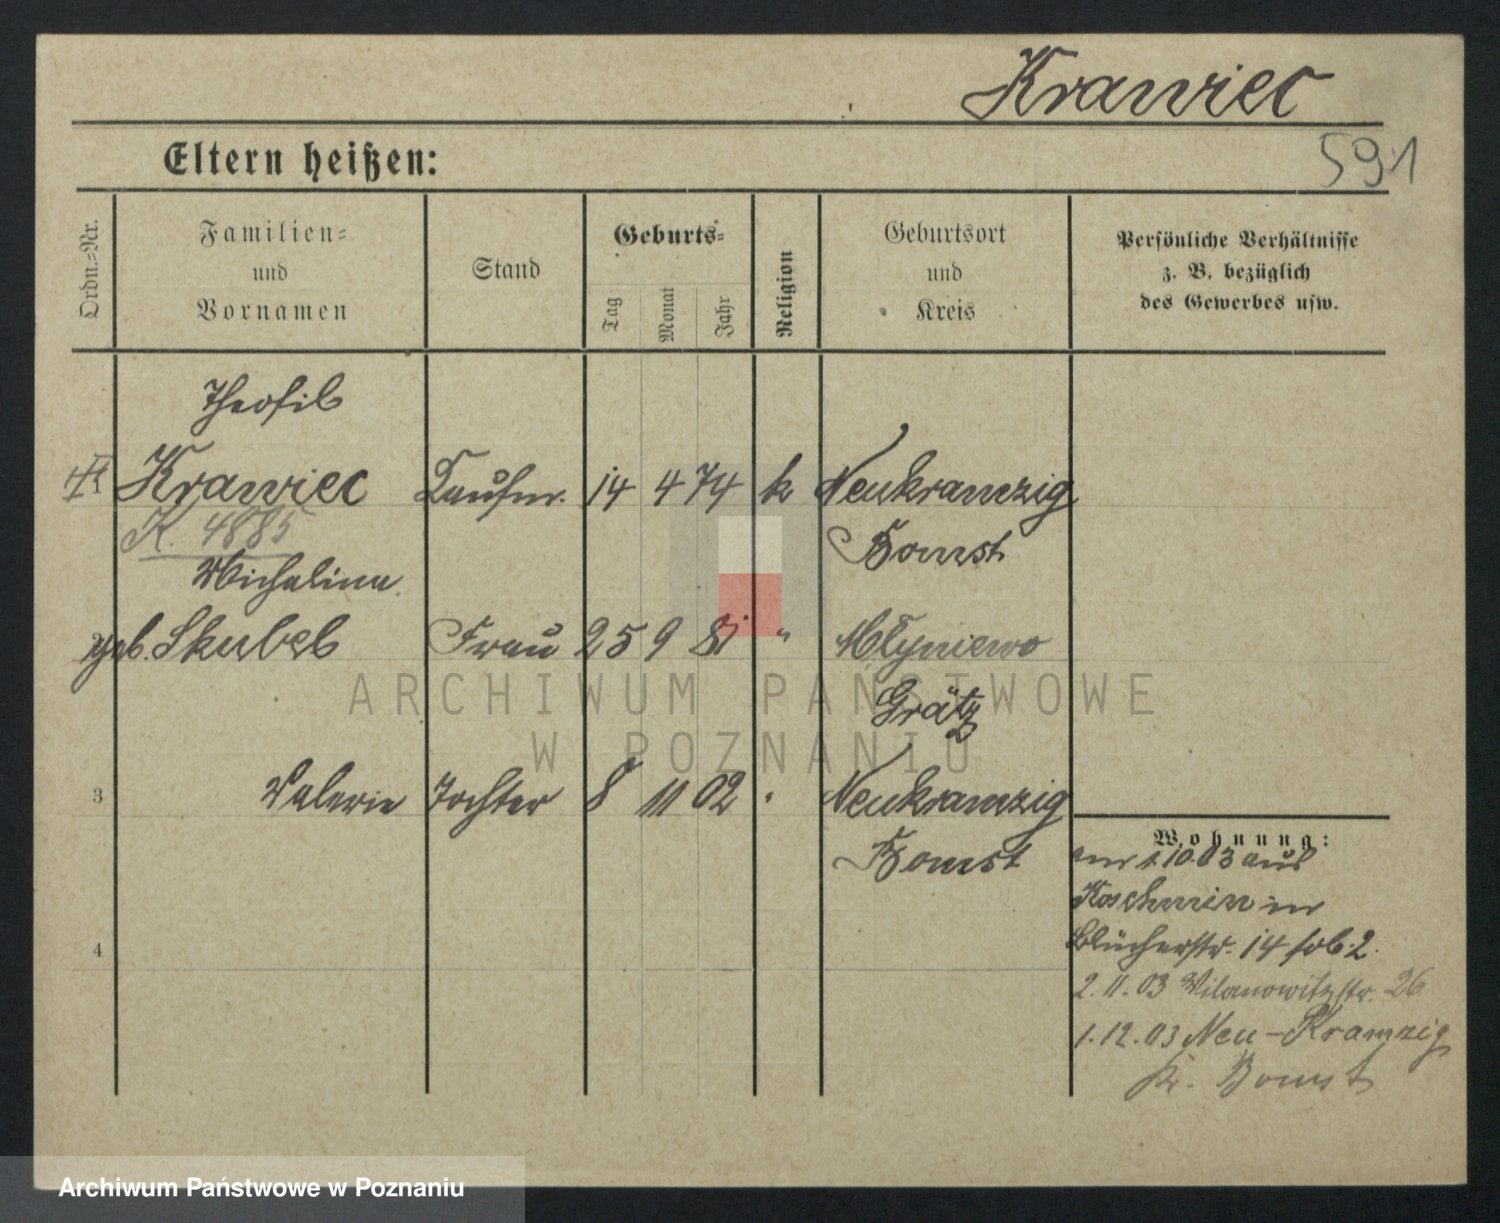 Krawiec
591
Eltern heißen:
Ordn.-Nr.
Familien-
und
Vornamen
Stand
Geburts-
Tag
Monat
Jahr
Religion
Geburtsort
und
Kreis
Persönliche Verhältnisse
z. B. bezüglich
des Gewerbes usw.
Theofil
Krawiec Kaufm. 14 4 74 k Neukramzig
K. 4885 Bomst
Michalina
geb. Skubel Frau 25 9 81 " Młyniewo
Grätz
3 Valerie Tochter 8 11 02 " Neukramzig
Bomst
Wohnung:
am 1.10.03 aus
Koschmin in
4 Blücherstr. 14 2.
2.11.03 Wilamowitzstr. 26
1.12.03 Neu-Kramzig
Kr. Bomst
ARCHIWUM PAŃSTWOWE
W POZNANIU
Archiwum Państwowe w Poznaniu